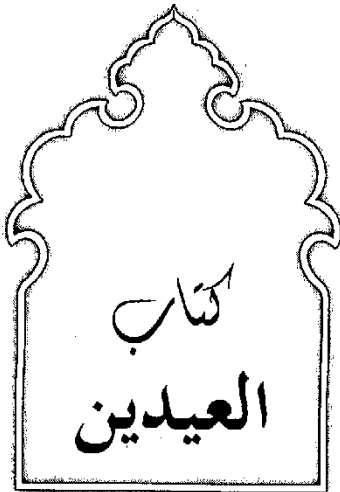 كتاب
العيدين